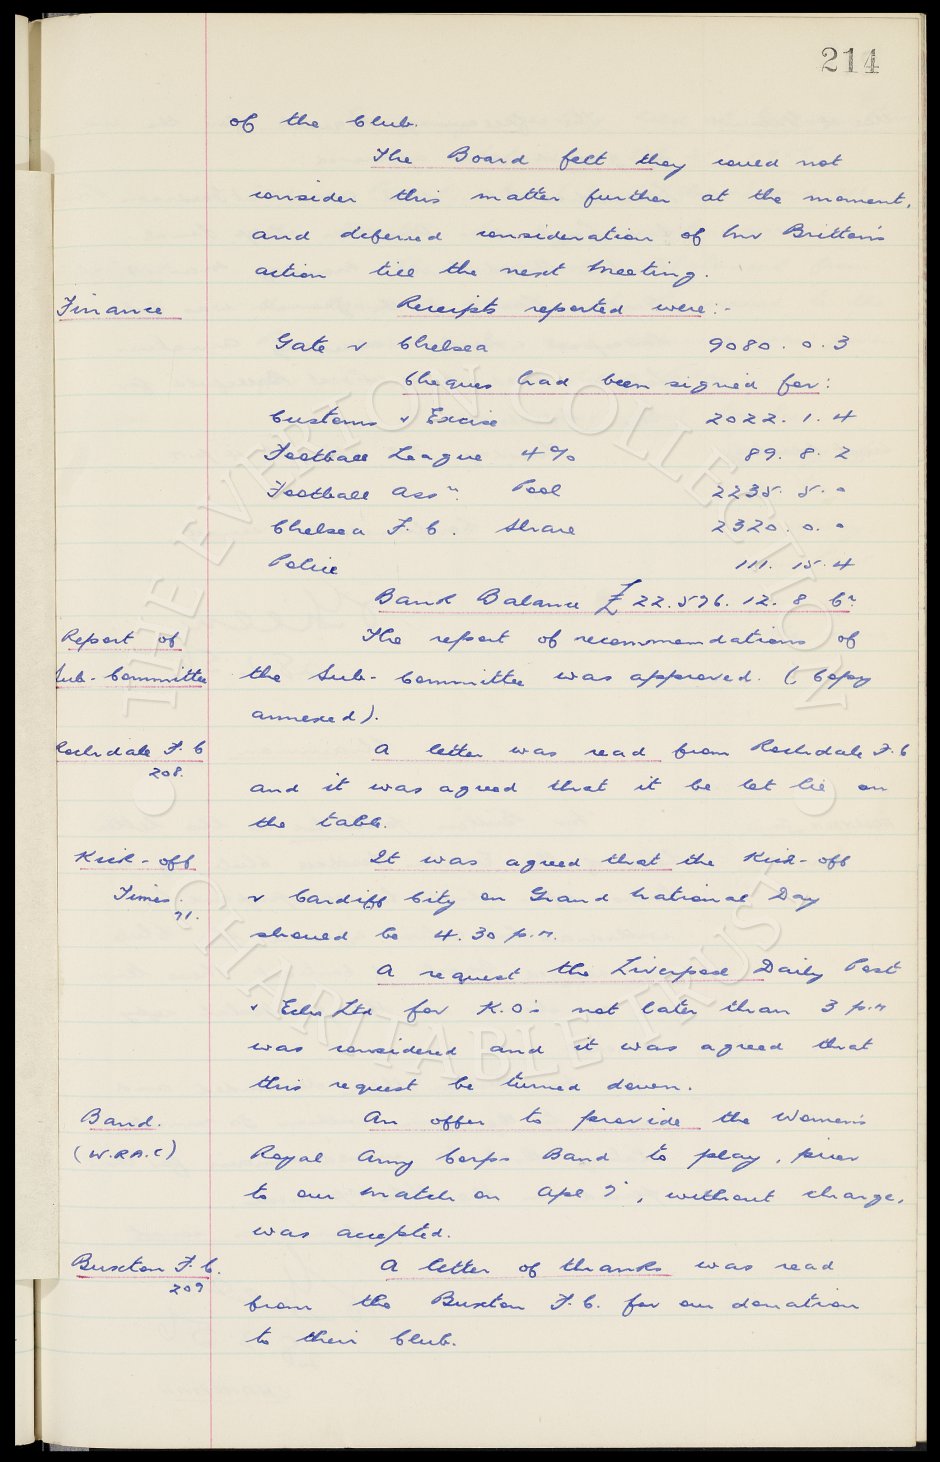 214
of the Club.
The Board felt they could not
consider this matter further at the moment,
and deferred consideration of Mr Britton's
action till the next meeting.
Finance
Receipts reported were:-
Gate v Chelsea 9080. 0. 3
Cheques had been signed for:
Customs & Excise 2022. 1. 4
Football League 4% 89. 8. 2
Football Assn. Pool 2235. 5. 0
Chelsea F.C. Share 2320. 0. 0
Police 111. 15. 4
Bank Balance £22.596. 12. 8 Cr
Report of
Sub-Committee
The report of recommendations of
the Sub-Committee was approved. (Copy
annexed).
Rochdale F.C
208.
A letter was read from Rochdale F.C
and it was agreed that it be let lie on
the table.
Kick-off
Times.
71.
It was agreed that the Kick-off
v Cardiff City on Grand National Day
should be 4.30 p.m.
A request the Liverpool Daily Post
& Echo Ltd for K.O's not later than 3 p.m
was considered and it was agreed that
this request be turned down.
Band.
(W.RA.C)
An offer to provide the Women's
Royal Army Corps Band to play, prior
to our match on Apl 7, without charge,
was accepted.
Buxton F.C.
209
A letter of thanks was read
from the Buxton F.C. for our donation
to their Club.
THE EVERTON COLLECTION
CHARITABLE TRUST